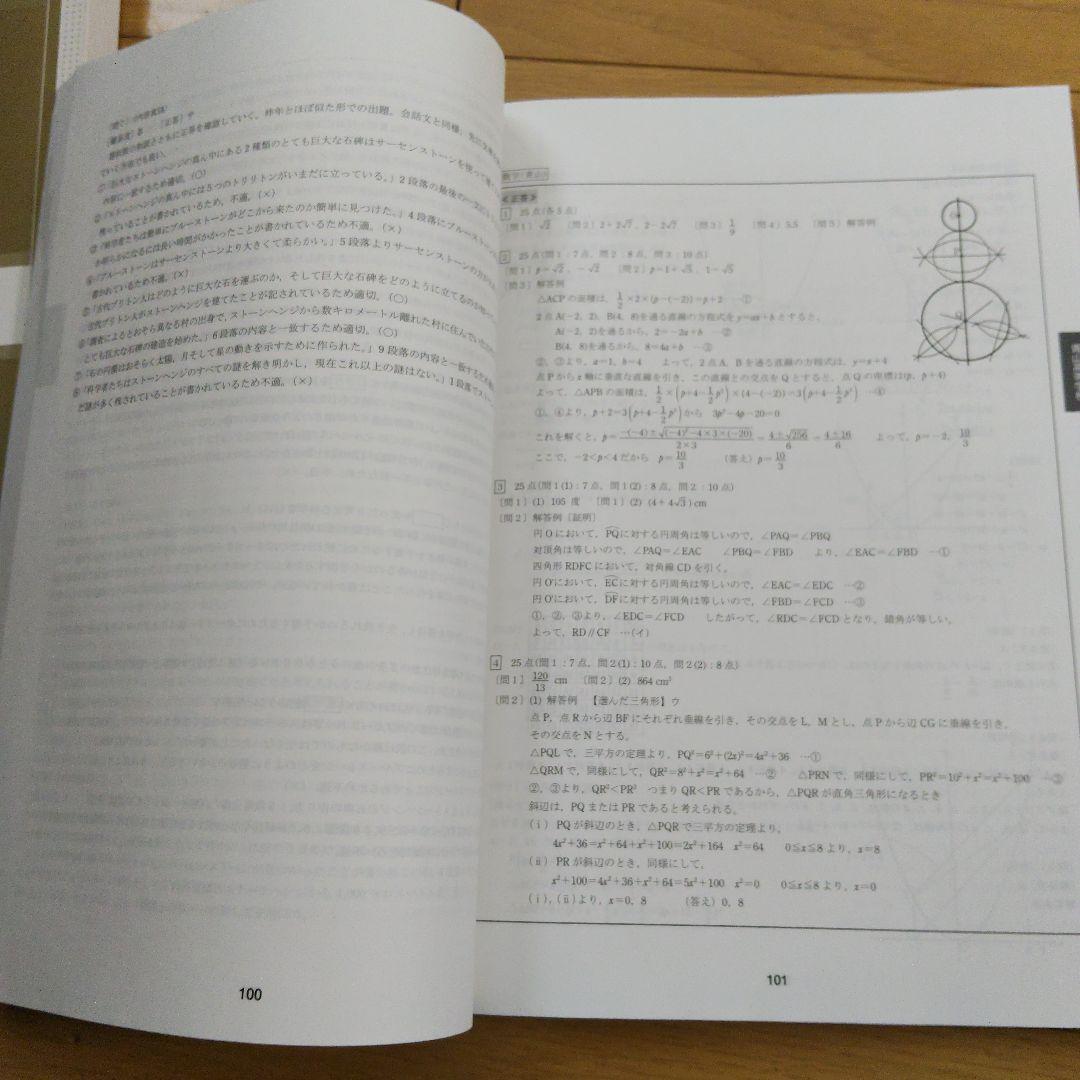 〔問7〕(内容真偽)
〔難易度〕B 〔正答〕サ
ていく方法でも良い。
内容に一致するため適切。(○)
②「ストーンヘンジの真ん中には5つのトリリトンがいまだに立っている。」2段落の最後の一文に
残っていることが書かれているため、不適。(×)
③「科学者たちは簡単にブルーストーンがどこから来たのか簡単に見つけた。」4段落にブルーストーン
が明らかになるには長い時間がかかったことが書かれているため不適。(×)
④「ブルーストーンはサーセンストーンより大きくて柔らかい。」5段落よりサーセンストーンの方が
書かれているため不適。(×)
⑤「古代ブリトン人はどのように巨大な石を運ぶのか、そして巨大な石碑をどのように立てるのか
古代ブリトン人がストーンヘンジを建てたことが記されているため適切。(○)
⑥「調査によるとおそら異なる村の出身で、ストーンヘンジから数キロメートル離れた村に住んでいた
とても巨大な石碑の建造を始めた。」6段落の内容と一致するため適切。(○)
⑦「石の円環はおそらく太陽、月そして星の動きを示すために作られた。」9段落の内容と一致する
⑧「科学者たちはストーンヘンジのすべての謎を解き明かし、現在これ以上の謎はない。」1段落で
だ謎が多く残されていることが書かれているため不適。(×)
100
≪正答≫
1 25点(各5点)
〔問1〕√2 〔問2〕2+2√7, 2−2√7 〔問3〕1/9 〔問4〕5.5 〔問5〕解答例
2 25点(問1:7点, 問2:8点, 問3:10点)
〔問1〕p=√2, −√2 〔問2〕p=1+√5, 1−√5
〔問3〕解答例
△ACPの面積は、1/2×2×(p−(−2))=p+2 …①
2点A(−2, 2), B(4, 8)を通る直線の方程式をy=ax+bとすると、
A(−2, 2)を通るから、2=−2a+b …②
B(4, 8)を通るから、8=4a+b …③
②、③より、a=1, b=4 よって、2点A、Bを通る直線の方程式は、y=x+4
点Pからx軸に垂直な直線を引き、この直線との交点をQとすると、点Qの座標は(p, p+4)
よって、△APBの面積は、1/2×(p+4−1/2p²)×(4−(−2))=3(p+4−1/2p²) …④
①、④より、p+2=3(p+4−1/2p²)から 3p²−4p−20=0
これを解くと、p=−(−4)±√(−4)²−4×3×(−20)/2×3=4±√256/6=4±16/6 よって、p=−2, 10/3
ここで、−2<p<4だから p=10/3 (答え) p=10/3
3 25点(問1(1):7点, 問1(2):8点, 問2:10点)
〔問1〕(1) 105 度 〔問1〕(2) (4+4√3)cm
〔問2〕解答例〔証明〕
円Oにおいて、PQに対する円周角は等しいので、∠PAQ=∠PBQ
対頂角は等しいので、∠PAQ=∠EAC ∠PBQ=∠FBD より、∠EAC=∠FBD …①
四角形RDFCにおいて、対角線CDを引く。
円O'において、ECに対する円周角は等しいので、∠EAC=∠EDC …②
円O'において、DFに対する円周角は等しいので、∠FBD=∠FCD …③
①、②、③より、∠EDC=∠FCD したがって、∠RDC=∠FCDとなり、錯角が等しい。
よって、RD//CF …(イ)
4 25点(問1:7点, 問2(1):10点, 問2(2):8点)
〔問1〕120/13 cm 〔問2〕(2) 864cm²
〔問2〕(1) 解答例 【選んだ三角形】ウ
点P、点Rから辺BFにそれぞれ垂線を引き、その交点をL、Mとし、点Pから辺CGに垂線を引き、
その交点をNとする。
△PQLで、三平方の定理より、PQ²=6²+(2x)²=4x²+36 …①
△QRMで、同様にして、QR²=8²+x²=x²+64 …② △PRNで、同様にして、PR²=10²+x²=x²+100 …③
②、③より、QR²<PR² つまりQR<PRであるから、△PQRが直角三角形になるとき
斜辺は、PQまたはPRであると考えられる。
(i) PQが斜辺のとき、△PQRで三平方の定理より、
4x²+36=x²+64+x²+100=2x²+164 x²=64 0≦x≦8より、x=8
(ii) PRが斜辺のとき、同様にして、
x²+100=4x²+36+x²+64=5x²+100 x²=0 0≦x≦8より、x=0
(i), (ii)より、x=0, 8 (答え) 0, 8
101